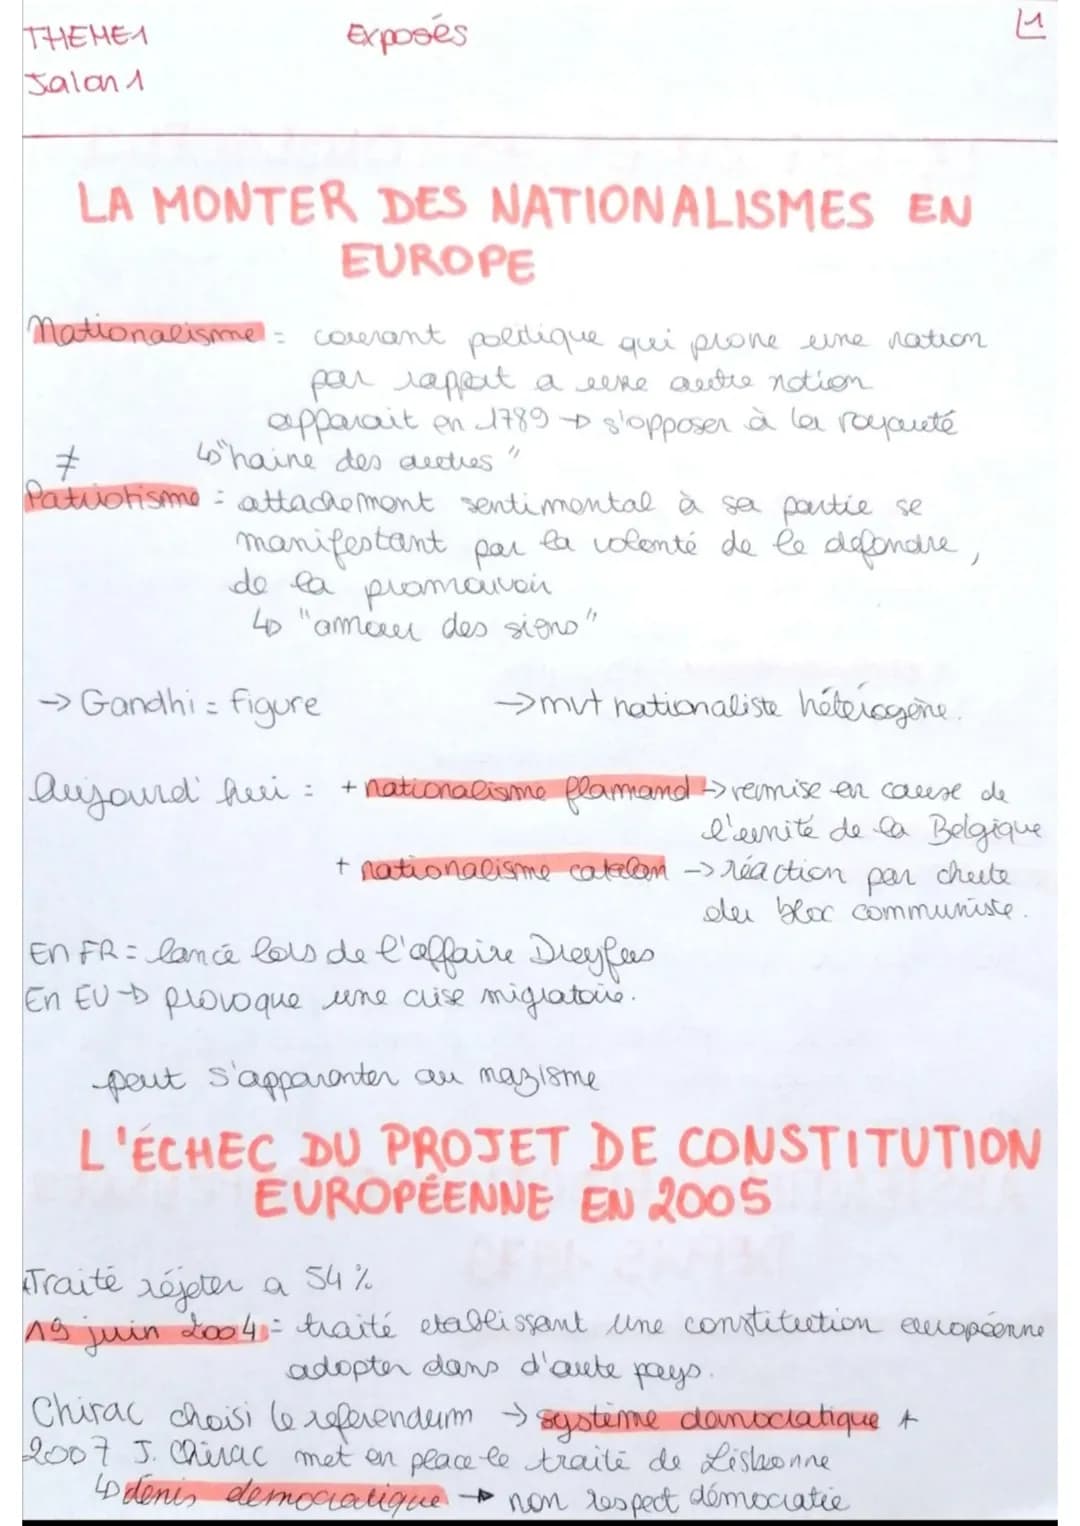 THEME1 Exposés 1
Jalon 1
LA MONTER DES NATIONALISMES EN
EUROPE
Nationalisme = courant politique qui prone une nation
par rapport a une autre notion
apparait en 1789 → s'opposer à la royauté
≠ ↳"haine des autres"
Patriotisme = attachement sentimental à sa partie se
manifestant par la volonté de le défendre,
de la promouvoir
↳ "amour des siens"
→ Gandhi = figure → mvt nationaliste hétérogène.
Aujourd'hui : + nationalisme flamand → remise en cause de
l'unité de la Belgique
+ nationalisme catalan → réaction par chute
du bloc communiste.
En FR = lancé lors de l'affaire Dreyfus
En EU → provoque une crise migratoire.
peut s'apparenter au nazisme
L'ÉCHEC DU PROJET DE CONSTITUTION
EUROPÉENNE EN 2005
Traité réjeter a 54%
19 juin 2004 = traité etablissant une constitution européenne
adopter dans d'autre pays.
Chirac choisi le referendum → système democratique +
2007 J. Chirac met en place le traité de Lisbonne
↳ dénis democratique → non respect démocratie